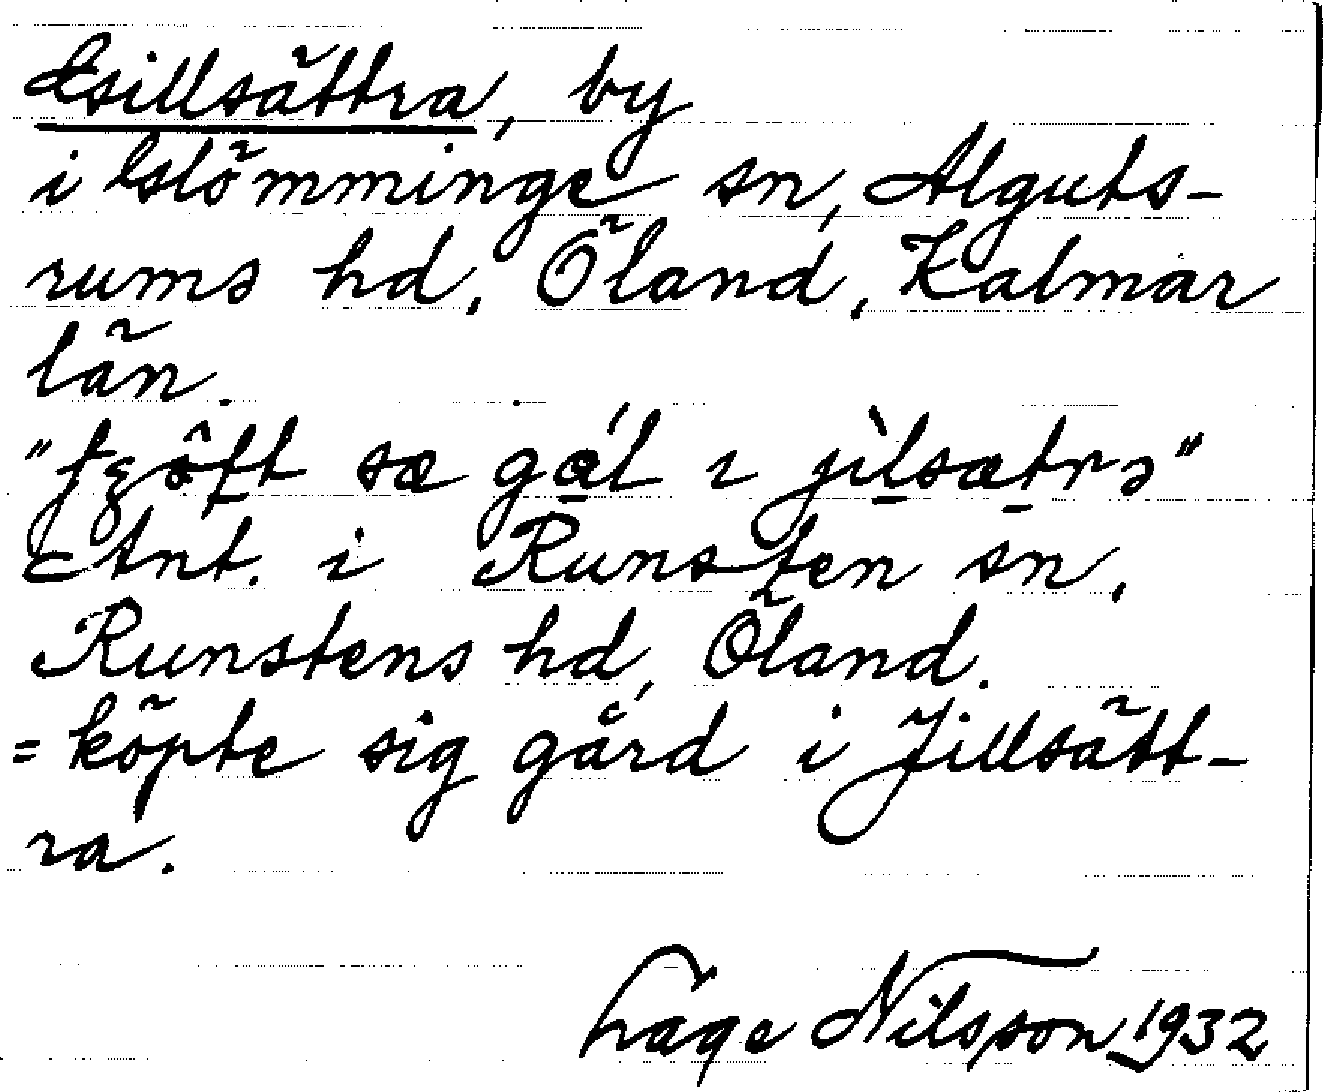 Gillsättra, by
i Glömminge sn, Alguts-
rums hd, Öland, Kalmar
län.
sæ
Ant. i Runsten sn,
Runstens hd, Öland.
= köpte sig gård i Jillsätt-
ra.
Nilsson 1932